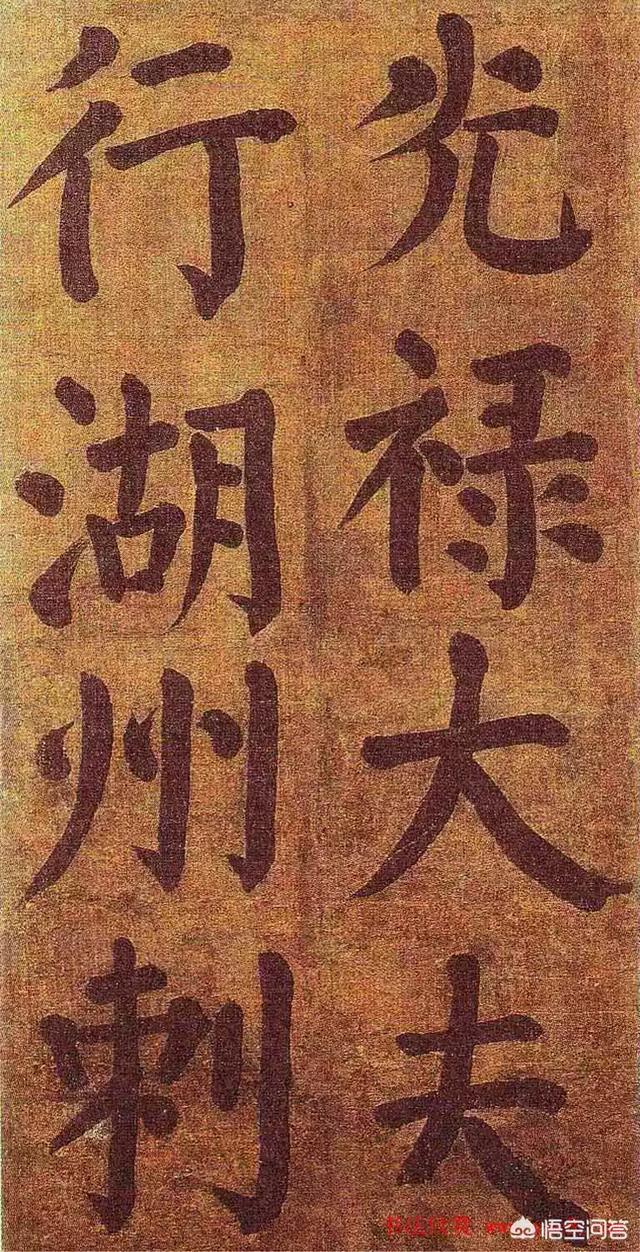 光禄大夫
行湖州刺
悟空问答